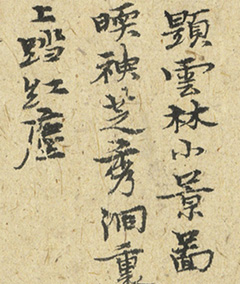 題雲林小景啚
暎袂芝秀洞
上踏紅塵